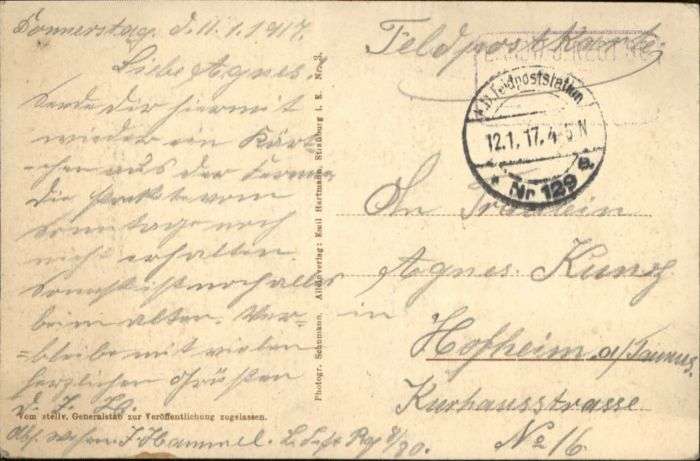 Donnerstag, d. 11.1.1917.
Liebe Agnes!
Sende dir hiermit
wieder ein Kärt-
chen aus der Ferne.
Die Pakete vom
Sonntag noch
nicht erhalten.
Sonst ist noch alles
beim alten. Ver-
=bleibe mit vielen
herzlichen Grüßen
Vom stellv. Generalstab zur Veröffentlichung zugelassen.
Abs. Wehrm. J. Hammel. L. Inft Rg 8/80.
Photogr. Schumann. Alleinverlag: Emil Hartmann, Strassburg i. E. Nr. 3.
Feldpostkarte
K.D. Feldpoststation
12.1.17. 4-5 N
* Nr 129 a.
An Fräulein
Agnes Kunz
in
Hofheim a/Taunus.
Kurhausstrasse
No 16